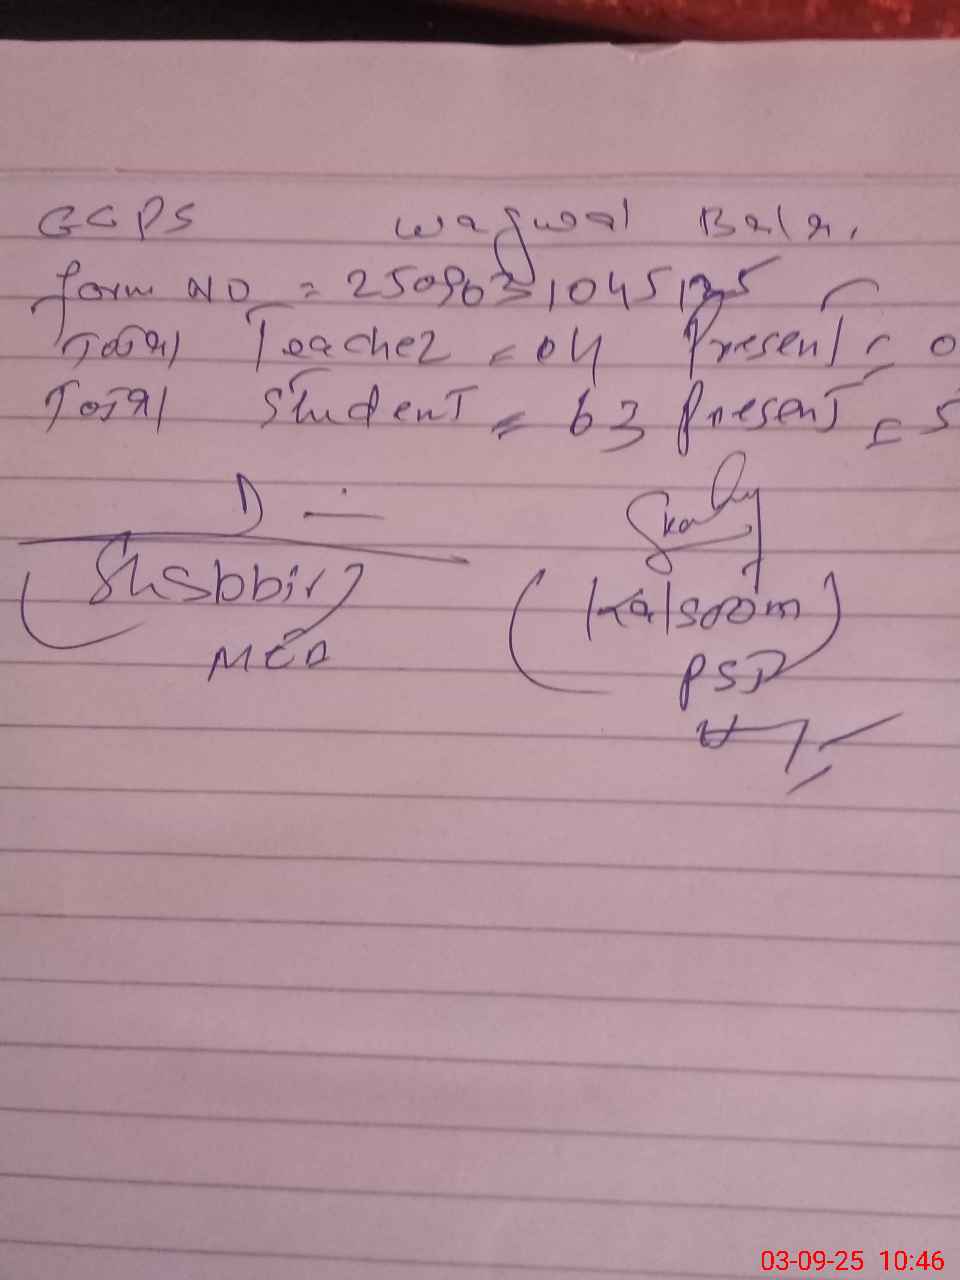 GGPS Wagwal Bala.
form NO = 2509031045125
Total Teacher = 04 Present = 0
Total Student = 63 Present = 5
(Shabbir)
MEA
(Kalsoom)
PST
03-09-25 10:46